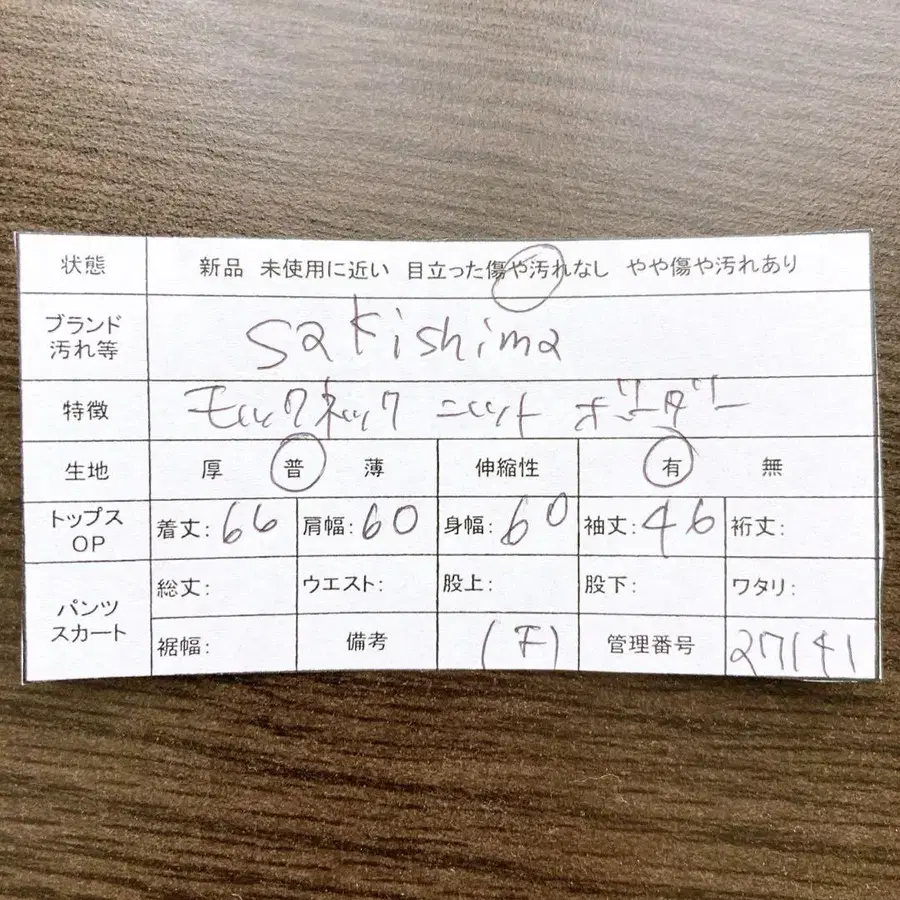 状態 新品 未使用に近い 目立った傷や汚れなし やや傷や汚れあり
ブランド
汚れ等
sakishima
特徴 モックネック ニット ボーダー
生地 厚 普 薄 伸縮性 有 無
トップス
OP
着丈: 66 肩幅: 60 身幅: 60 袖丈: 46 裄丈:
パンツ
スカート
総丈: ウエスト: 股上: 股下: ワタリ:
裾幅: 備考 (F) 管理番号 27141